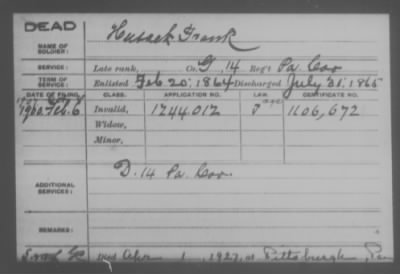 DEAD
NAME OF SOLDIER: Husack Frank
SERVICE: Late rank, Co. G, 14 Reg't Pa. Cav
TERM OF SERVICE: Enlisted Feb 20, 1864 Discharged July 31, 1865
DATE OF FILING. CLASS. APPLICATION NO. LAW. CERTIFICATE NO.
1900. Feb. 6 Invalid, 1244,012 age 1106,672
Widow,
Minor,
ADDITIONAL SERVICES: D. 14 Pa. Cav.
REMARKS:
Died Apr 1, 1927, at Pittsburgh, Pa